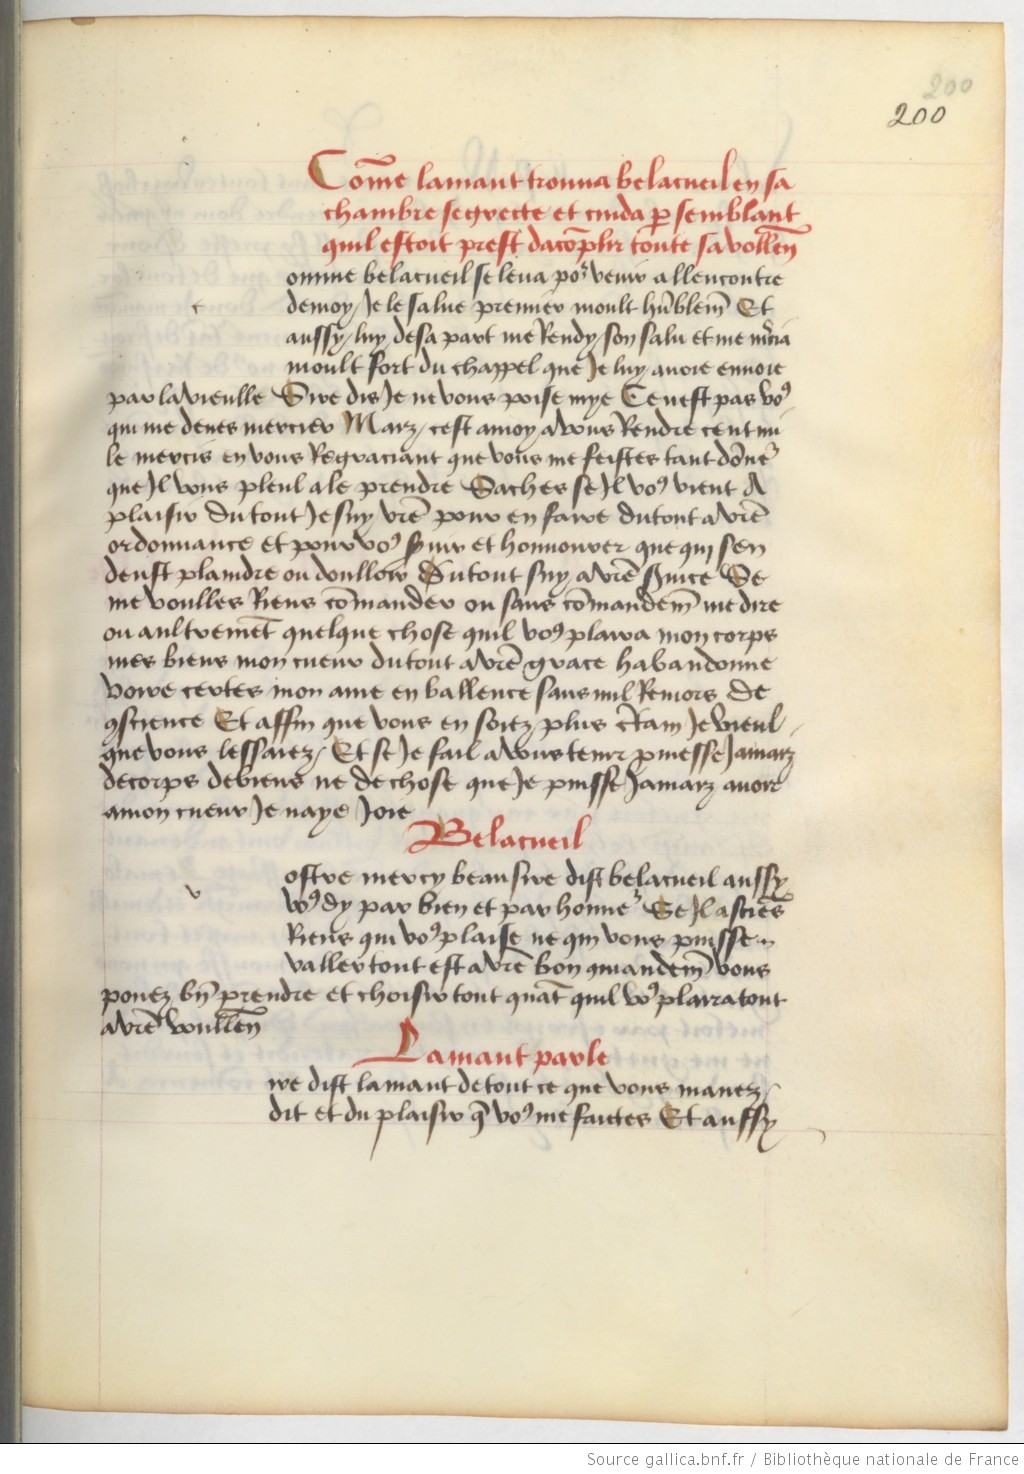 200
200
Cõme lamant trouua belacueil en sa
chambre segrecte et cuida p semblant
quil estoit prest dacõplir toute sa vollen̄
omme belacueil se leua po2 venir allencontre
c
demoy / Je le salue premier moult hũblem̃ Et
aussy / luy desa part me Rendy / son salu et me mcia
moult fort du chappel que Je luy auoie enuoie
par la vieulle Sire dis Je ne vous poise mye Ce nest pas vo9
qui me deues mercier Marz / cest amoy a vous Rendre cent mi
le mercis en vous Regraciant que vous me feistes tant dõne2
que Jl vous pleul a le prendre Saches se Jl vo9 vient A
plaisir Du tout Je suy vrẽ pour en faire du tout a vrẽ
ordonnance et pour vo9 suir et honnourer que qui sen
deust plaindre ou doulloir Du tout suy a vrẽ suice Se
me voulles Riens cõmander ou sans cõmandem̃ me dire
ou aultremẽt quelque chose quil vo9 plaira mon corps
mes biens mon cueur du tout a vrẽ grace habandonne
voire certes mon ame en ballence sans nul Remors de
9science Et affin que vous en soiez plus c̃tain Je vieul
que vous lessaiez / Et se Je fail a vous tenir pmesse Jamarz
de corps de biens ne de chose que Je puisse Jamarz auoir
amon cueur Je naye Joie
Belacueil
ostre mercy beau sire dist belacueil aussy
v
vo9 dy par bien et par honne2 Se Jl a sciẽs
Riens qui vo9 plaise ne qui vous puisse
valler tout est a vrẽ bon 9mandem̃ vous
pouez bñ prendre et choisir tout quãt quil vo9 plaira tout
a vrẽ voullen̄
Lamant parle
ire dist lamant de tout ce que vous mauez /
dit et du plaisir q̃ vo9 me faictes Et aussy
Source gallica.bnf.fr / Bibliothèque nationale de France